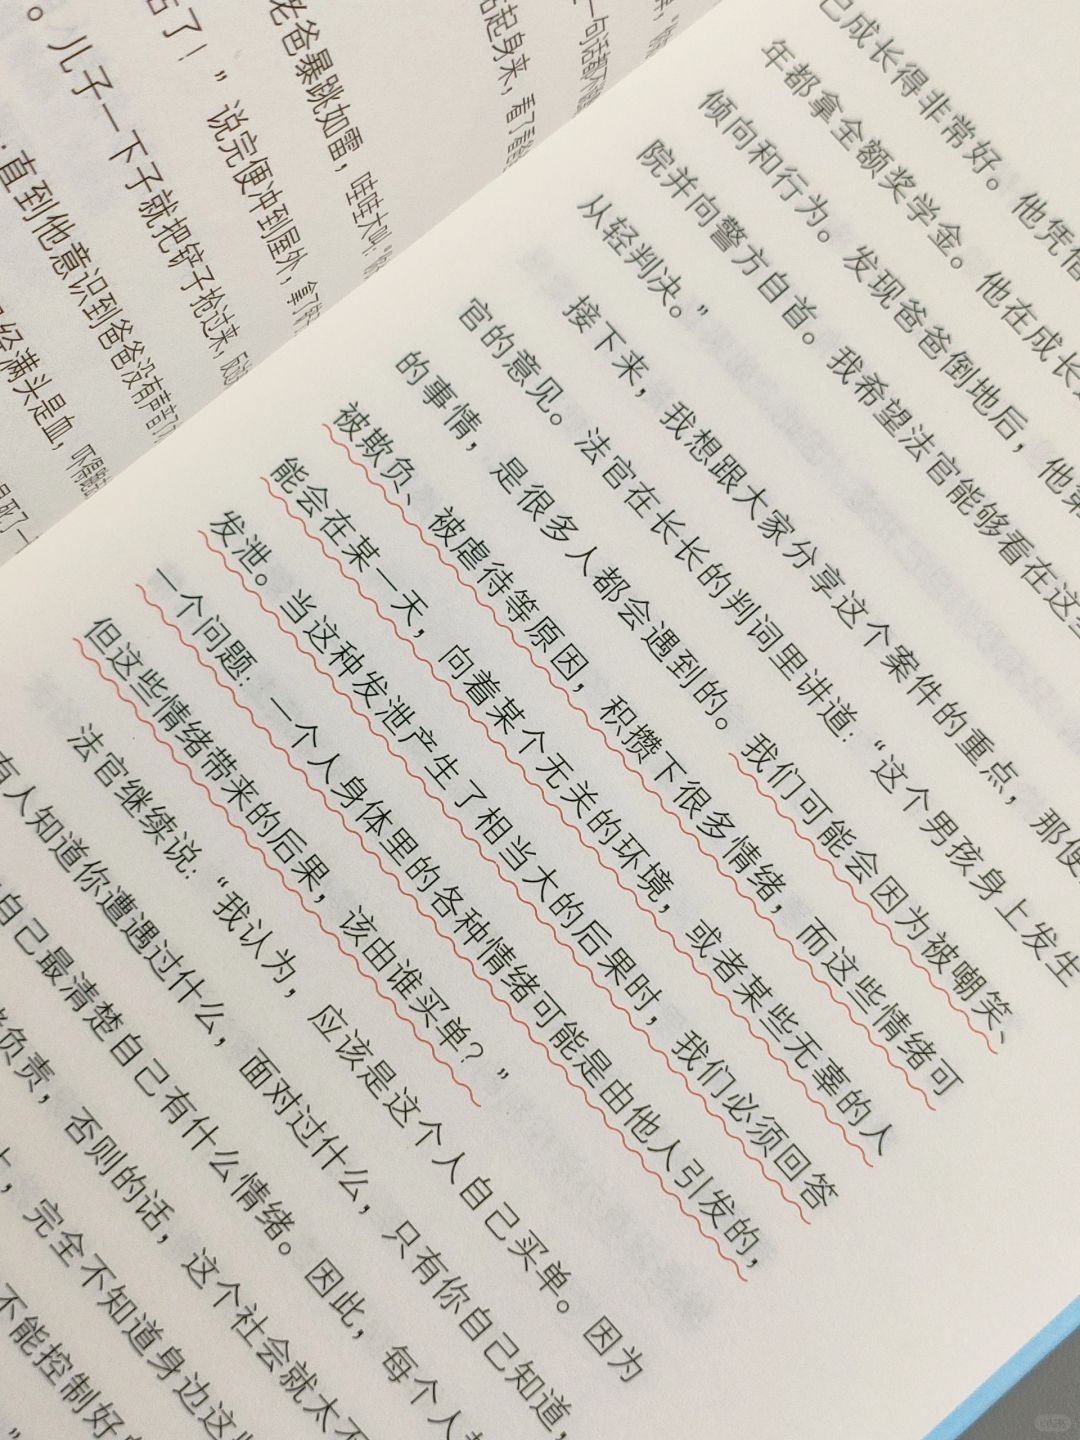 老爸暴跳如雷，哇哇大叫：
站起身来，看了看爸
一句话都不
了！”说完便冲到屋外，拿了
。儿子一下子就把铲子抢过来，反
直到他意识到爸爸没有声音了
满头是血，吓得
己成长得非常好。他凭借
年都拿全额奖学金。他在成长
倾向和行为。发现爸爸倒地后，他第
院并向警方自首。我希望法官能够看在这些
从轻判决。”
接下来，我想跟大家分享这个案件的重点，那便
官的意见。法官在长长的判词里讲道：“这个男孩身上发生
的事情，是很多人都会遇到的。我们可能会因为被嘲笑、
被欺负、被虐待等原因，积攒下很多情绪，而这些情绪可
能会在某一天，向着某个无关的环境，或者某些无辜的人
发泄。当这种发泄产生了相当大的后果时，我们必须回答
一个问题：一个人身体里的各种情绪可能是由他人引发的，
但这些情绪带来的后果，该由谁买单？”
法官继续说：“我认为，应该是这个人自己买单。因为
有人知道你遭遇过什么，面对过什么，只有你自己知道，
自己最清楚自己有什么情绪。因此，每个人
负责，否则的话，这个社会就太不
，完全不知道身边这些
不能控制好